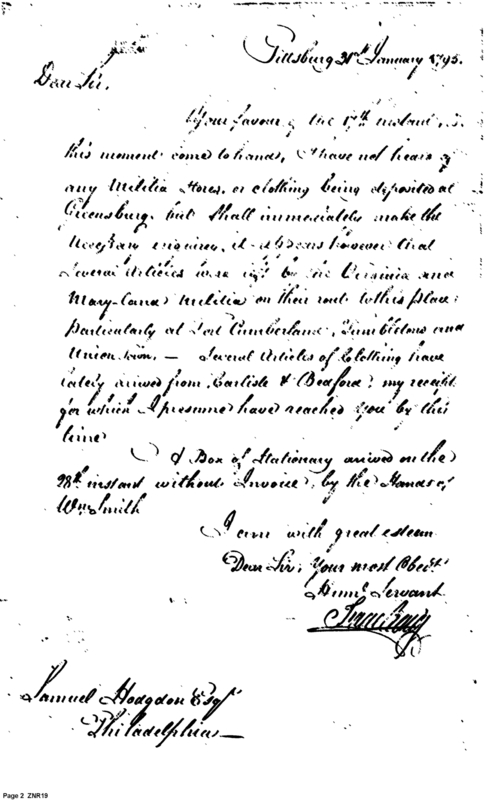 Pittsburg 31st January 1795.
Dear Sir,
Your favour of the 17th instant, is
this moment come to hand, I have not heard of
any Militia Stores, or clothing being deposited at
Greensburg, but shall immediately make the
necessary enquirey, it appears however that
Several Articles were left by the Virginia and
Mary-land Militia on their rout to this place;
particularly at Fort Cumberland, Tumbletons and
Union-town. — Several Articles of Clothing have
lately arrived from Carlisle & Bedford; my receipts
for which I presume have reached you by this
time
A Box of Stationary arrived on the
28th instant without Invoice, by the Hands of
Wm Smith
I am with great esteem
Dear Sir, Your most Obedt
Humle Servant
Isaac Craig
Samuel Hodgdon Esqr
Philadelphia —
Page 2 ZNR19